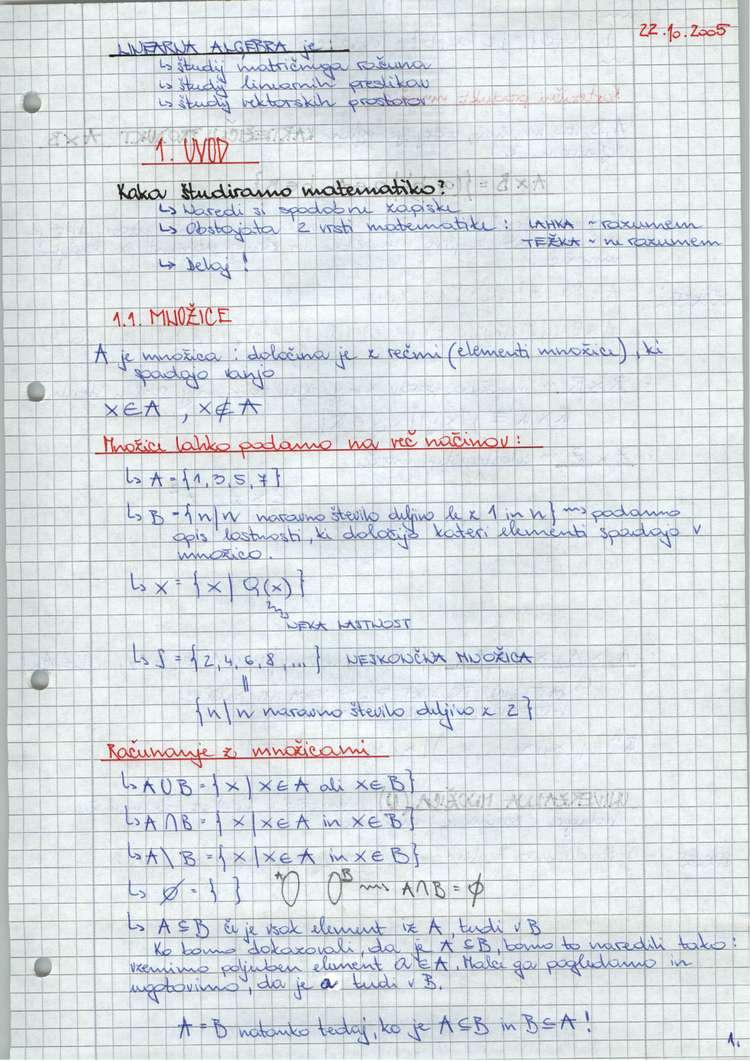 22.10.2005
LINEARNA ALGEBRA je:
↳ študij matričnega računa
↳ študij linearnih preslikav
↳ študij vektorskih prostorov
1. UVOD
Kako študiramo matematiko?
↳ Naredi si spodobne zapiske
↳ Obstajata 2 vrsti matematike: LAHKA ~ razumem
TEŽKA ~ ne razumem
↳ Delaj!
1.1. MNOŽICE
A je množica: določena je z rečmi (elementi množice), ki
spadajo vanjo
x∈A, x∉A
Množice lahko podamo na več načinov:
↳ A = {1, 3, 5, 7}
↳ B = {n | n naravno število deljivo le z 1 in n} ⇝ podamo
opis lastnosti, ki določajo kateri elementi spadajo v
množico.
↳ X = {x | Q(x)}
NEKA LASTNOST
↳ S = {2, 4, 6, 8, ...} NESKONČNA MNOŽICA
||
{n | n naravno število deljivo z 2}
Računanje z množicami
↳ A∪B = {x | x∈A ali x∈B}
↳ A∩B = {x | x∈A in x∈B}
↳ A\B = {x | x∈A in x∈B}
↳ ∅ = { } A B ⇝ A∩B = ∅
↳ A⊆B če je vsak element iz A, tudi v B
Ko bomo dokazovali, da je A⊆B, bomo to naredili tako:
vzemimo poljuben element a∈A. Malce ga pogledamo in
ugotovimo, da je a tudi v B.
A = B natanko tedaj, ko je A⊆B in B⊆A!
1.